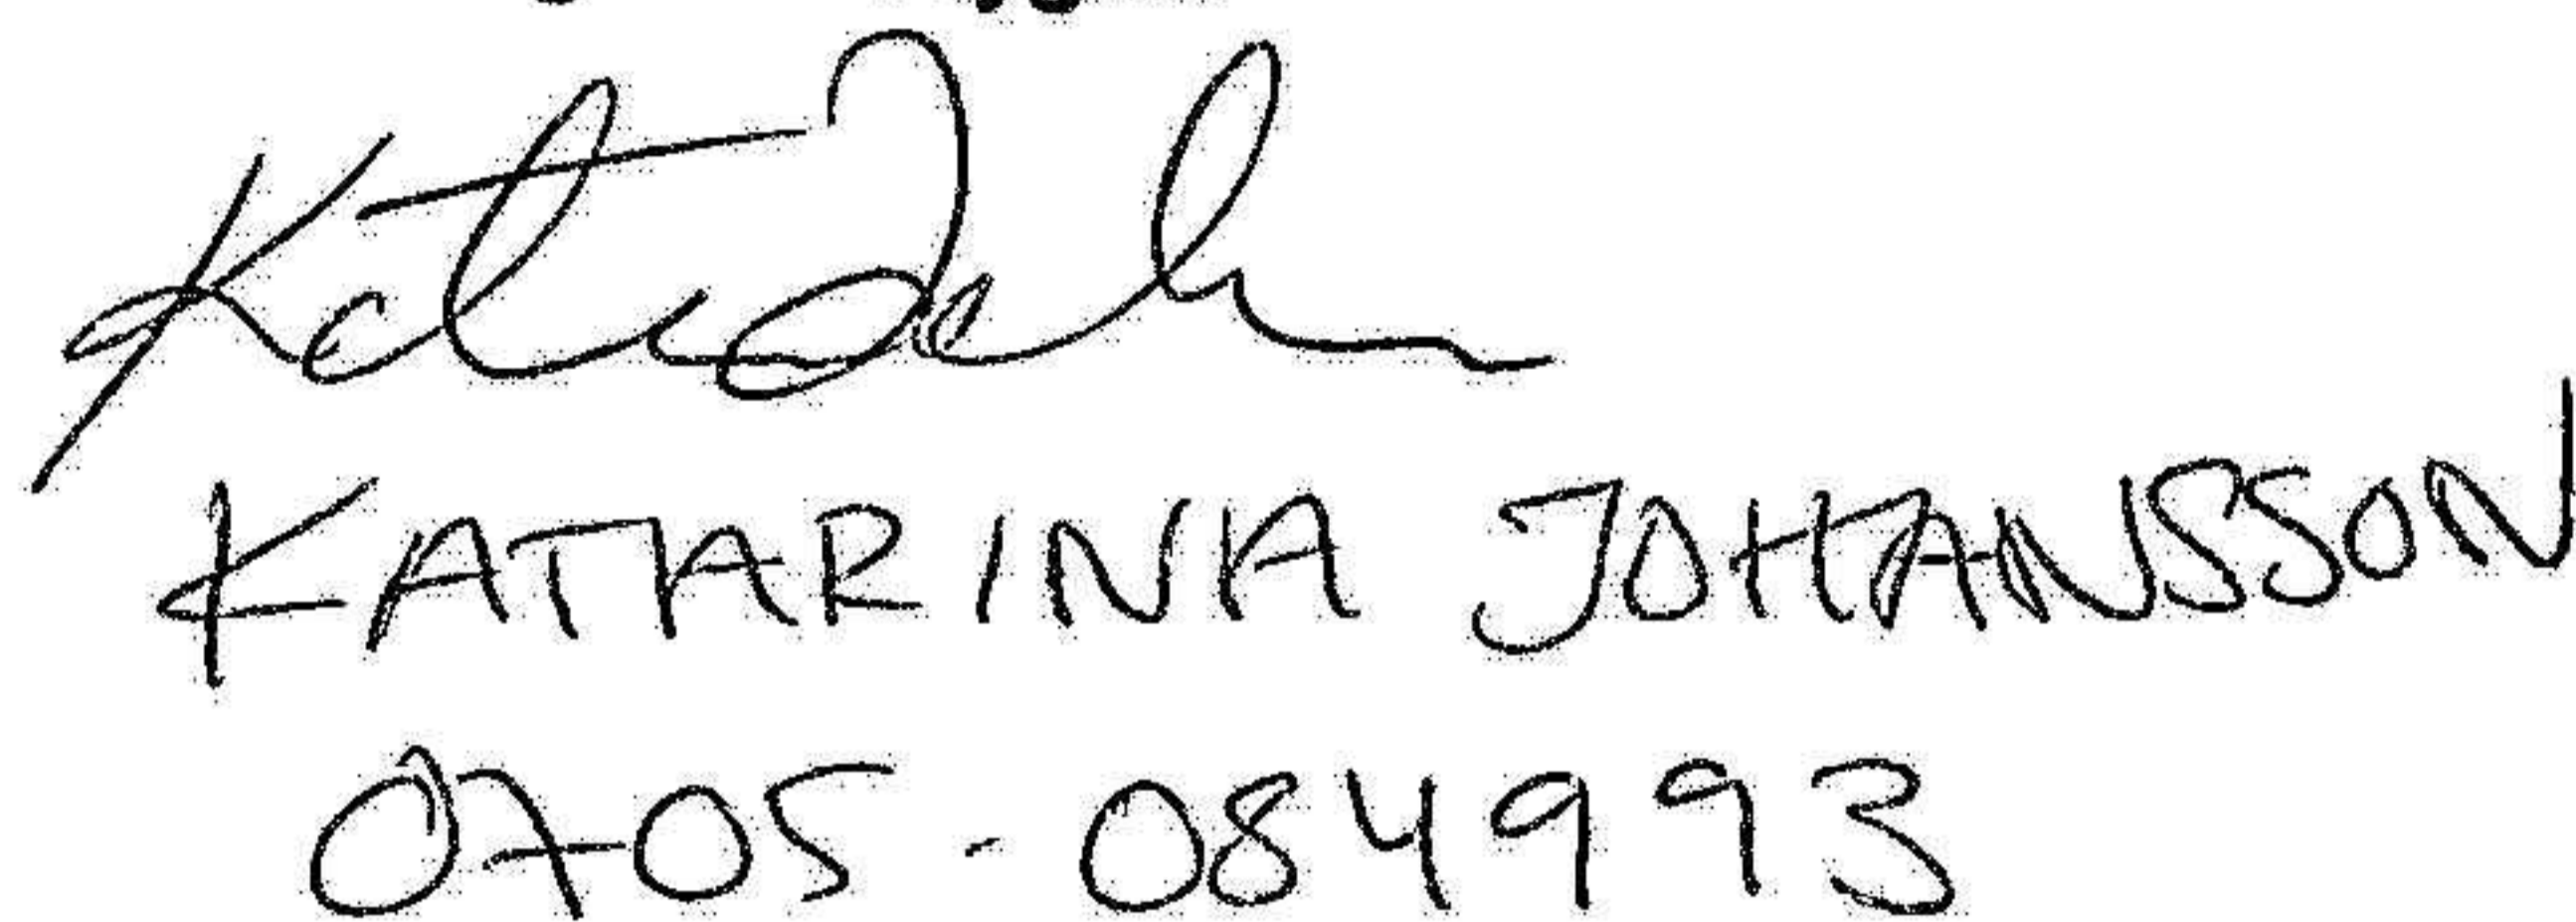 KATARINA JOHANSSON
0705-084993